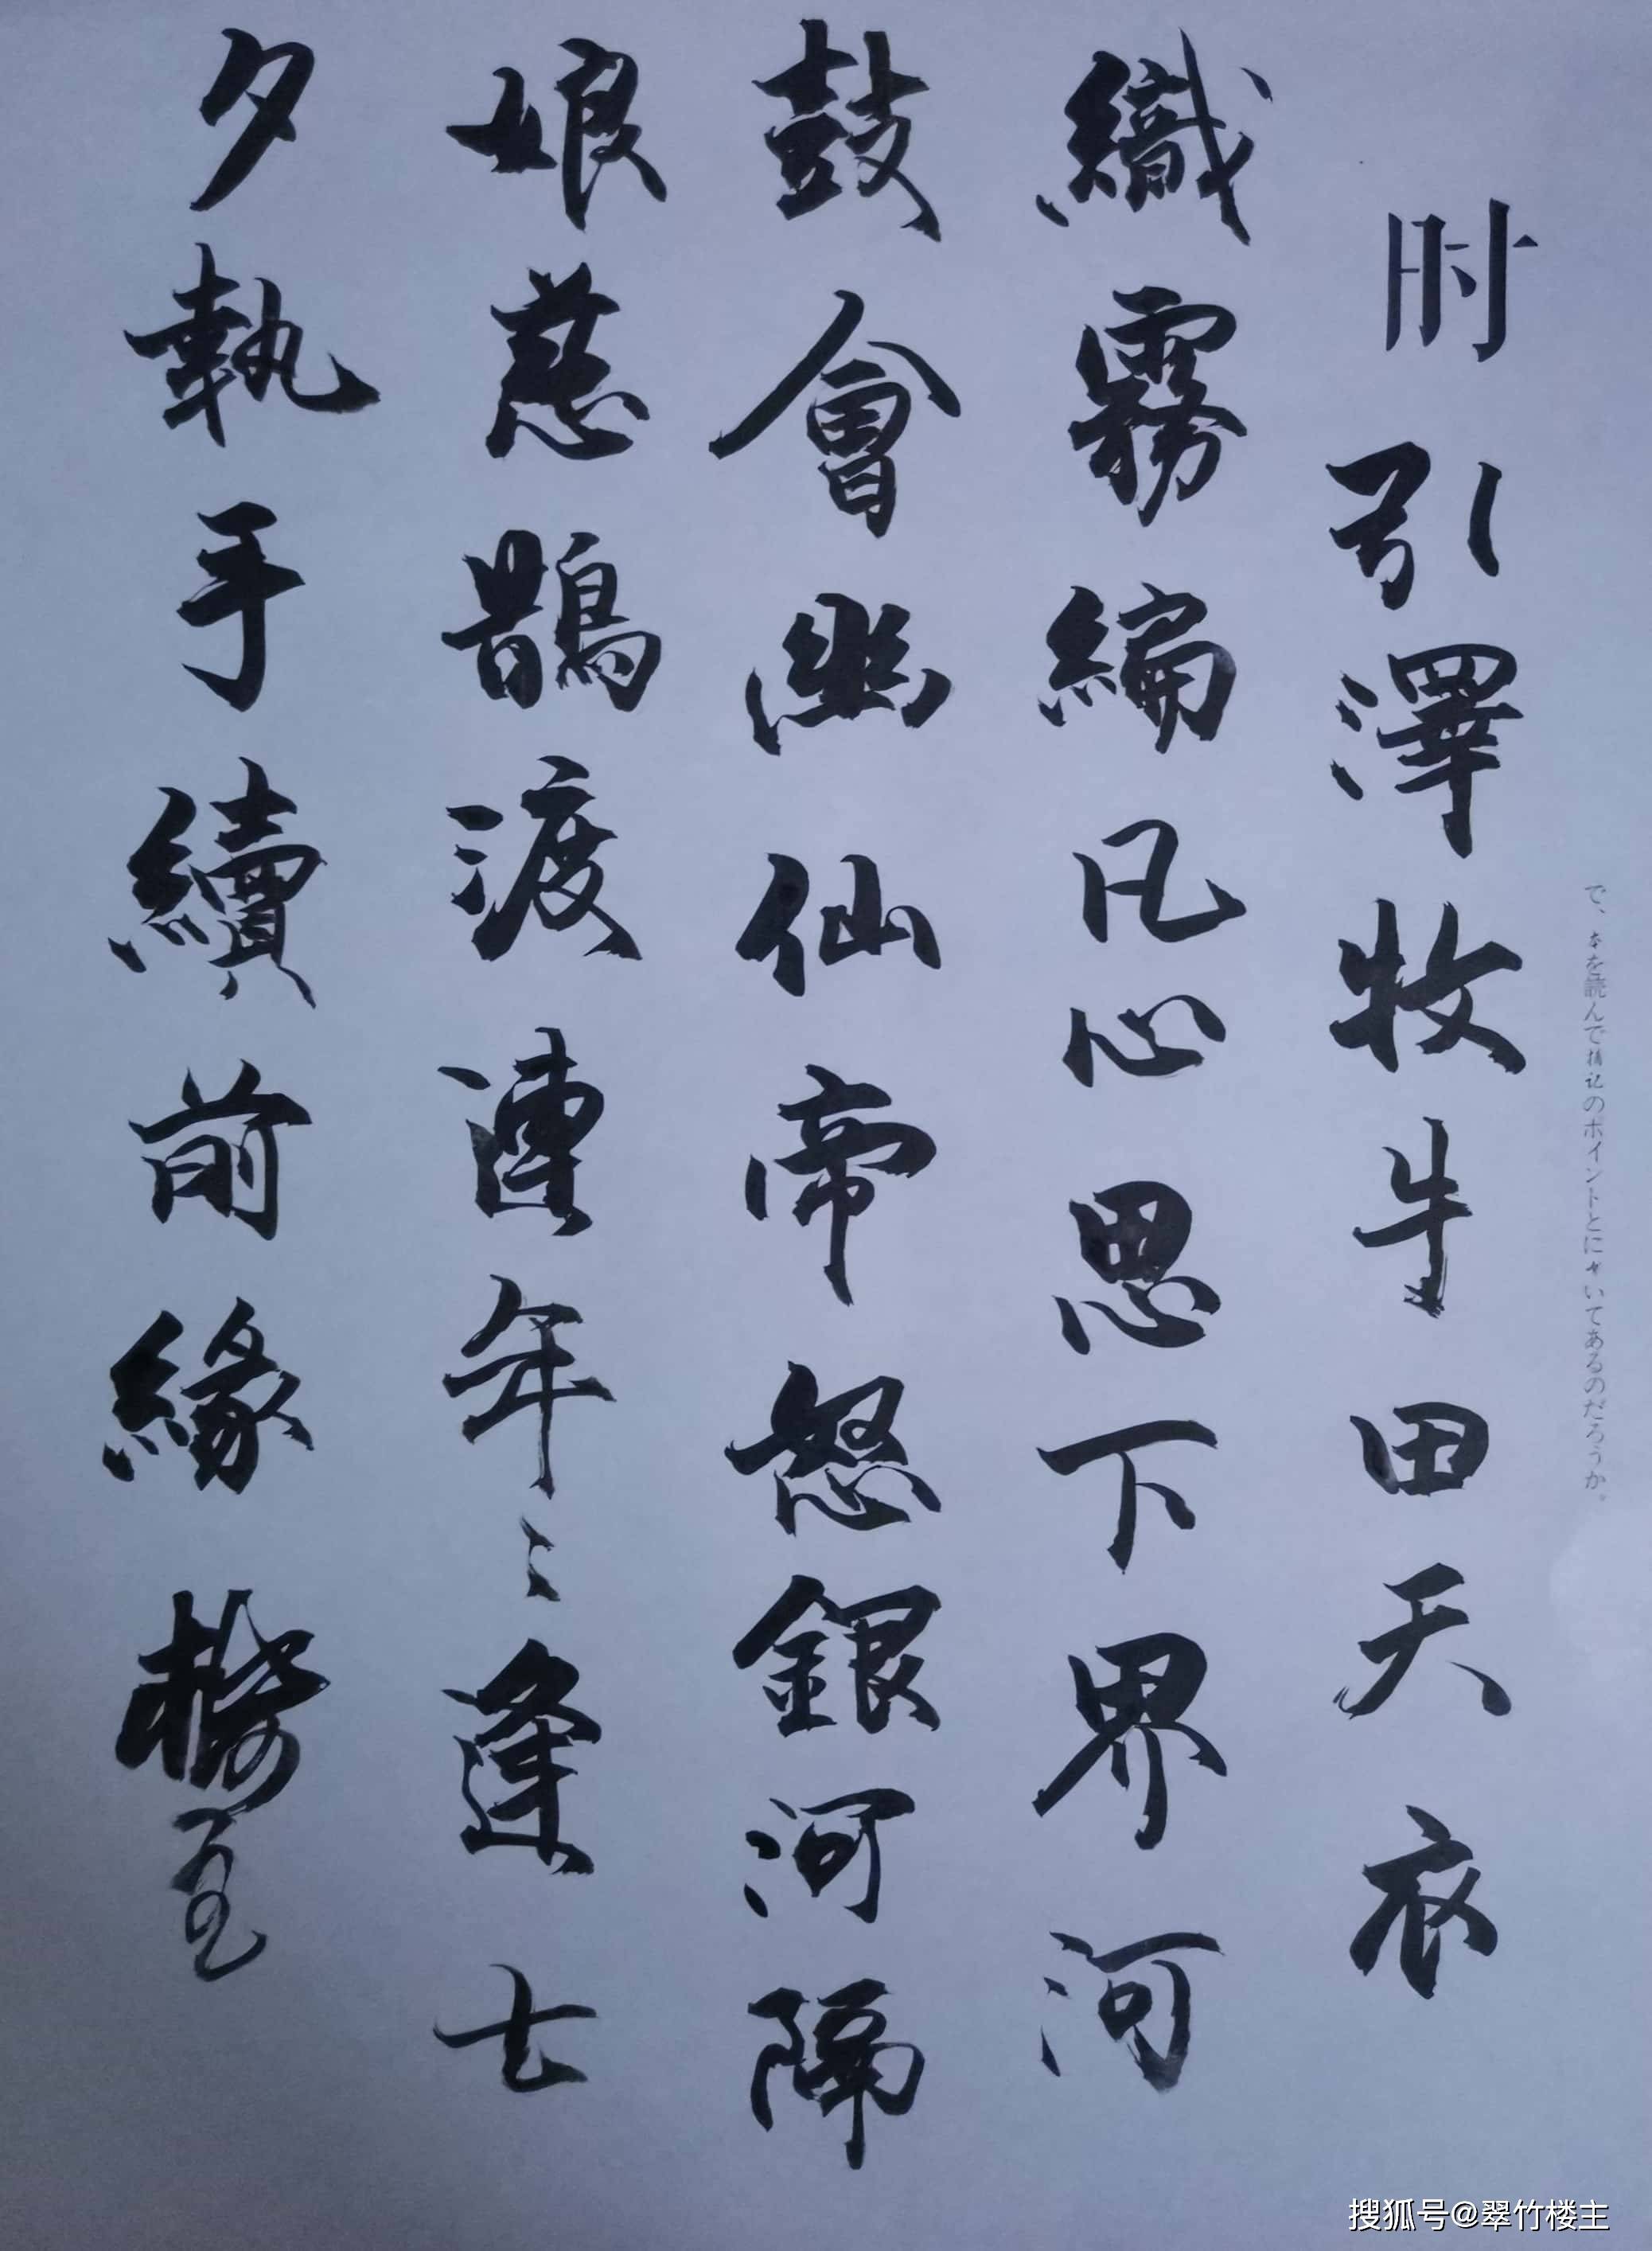 で、本を読んで記のポイントとにいてあるのだろうか。
时引澤牧牛田天衣
織霧編凡心思下界河
鼓會幽仙帝怒銀河隔
娘慈鵲渡連年〻逢七
夕執手續前緣
搜狐号@翠竹楼主